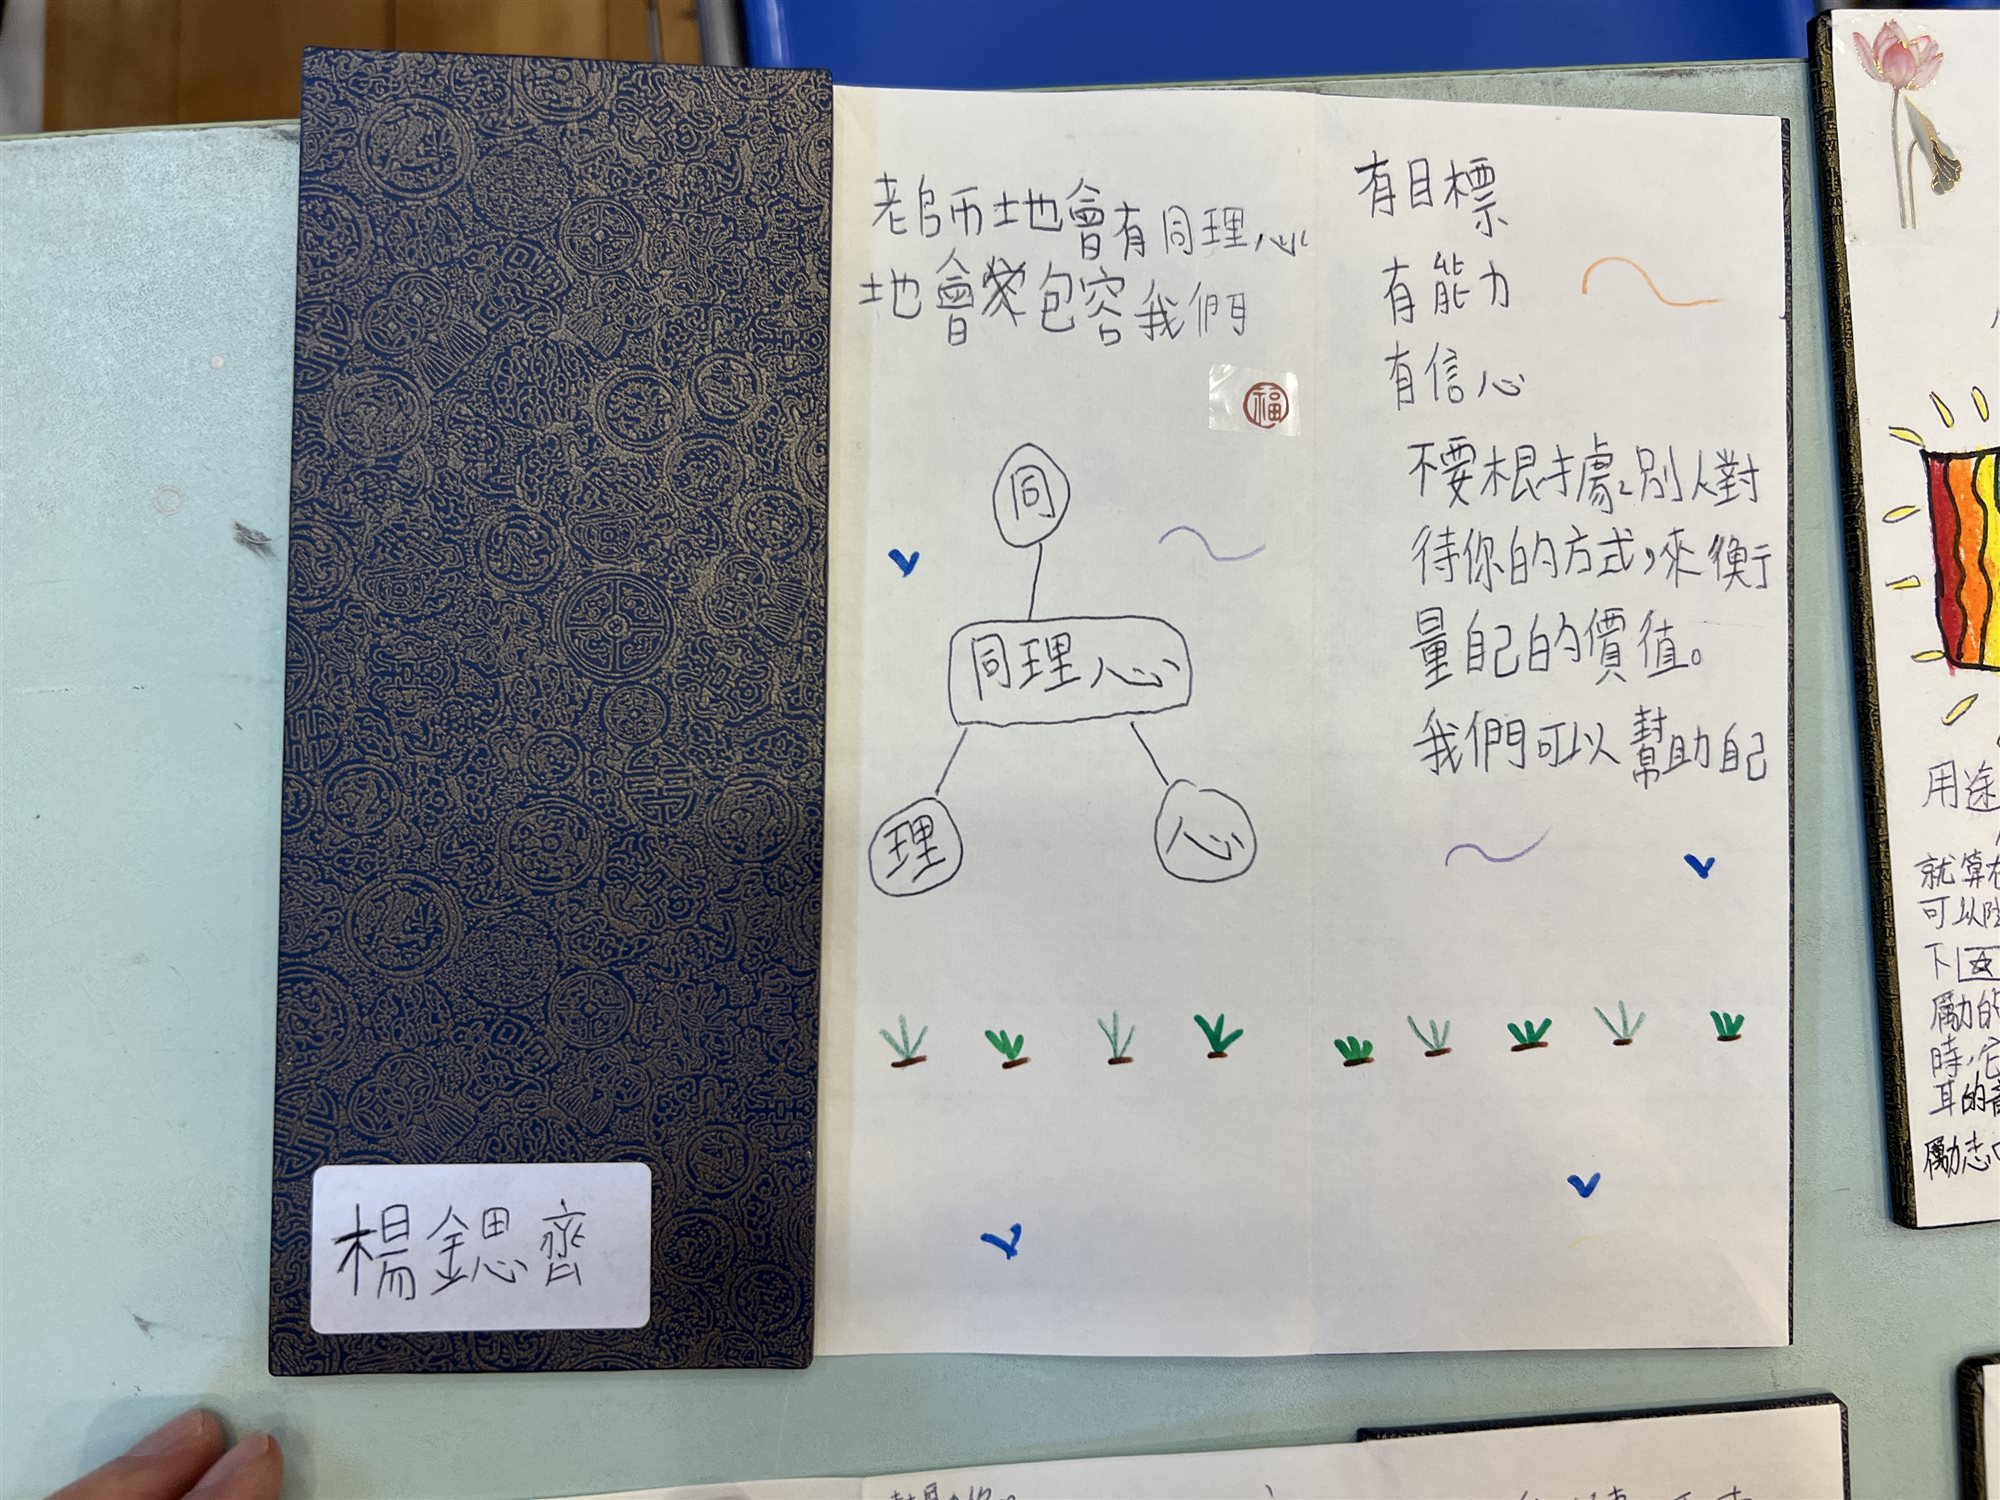 老師地會有同理心
地會包容我們
福
同
同理心
理
心
有目標
有能力
有信心
不要根據別人對
待你的方式,來衡
量自己的價值。
我們可以幫助自己
楊鍶齊
用途
就算在
可以
下
勵的
時,它
耳的音
勵志